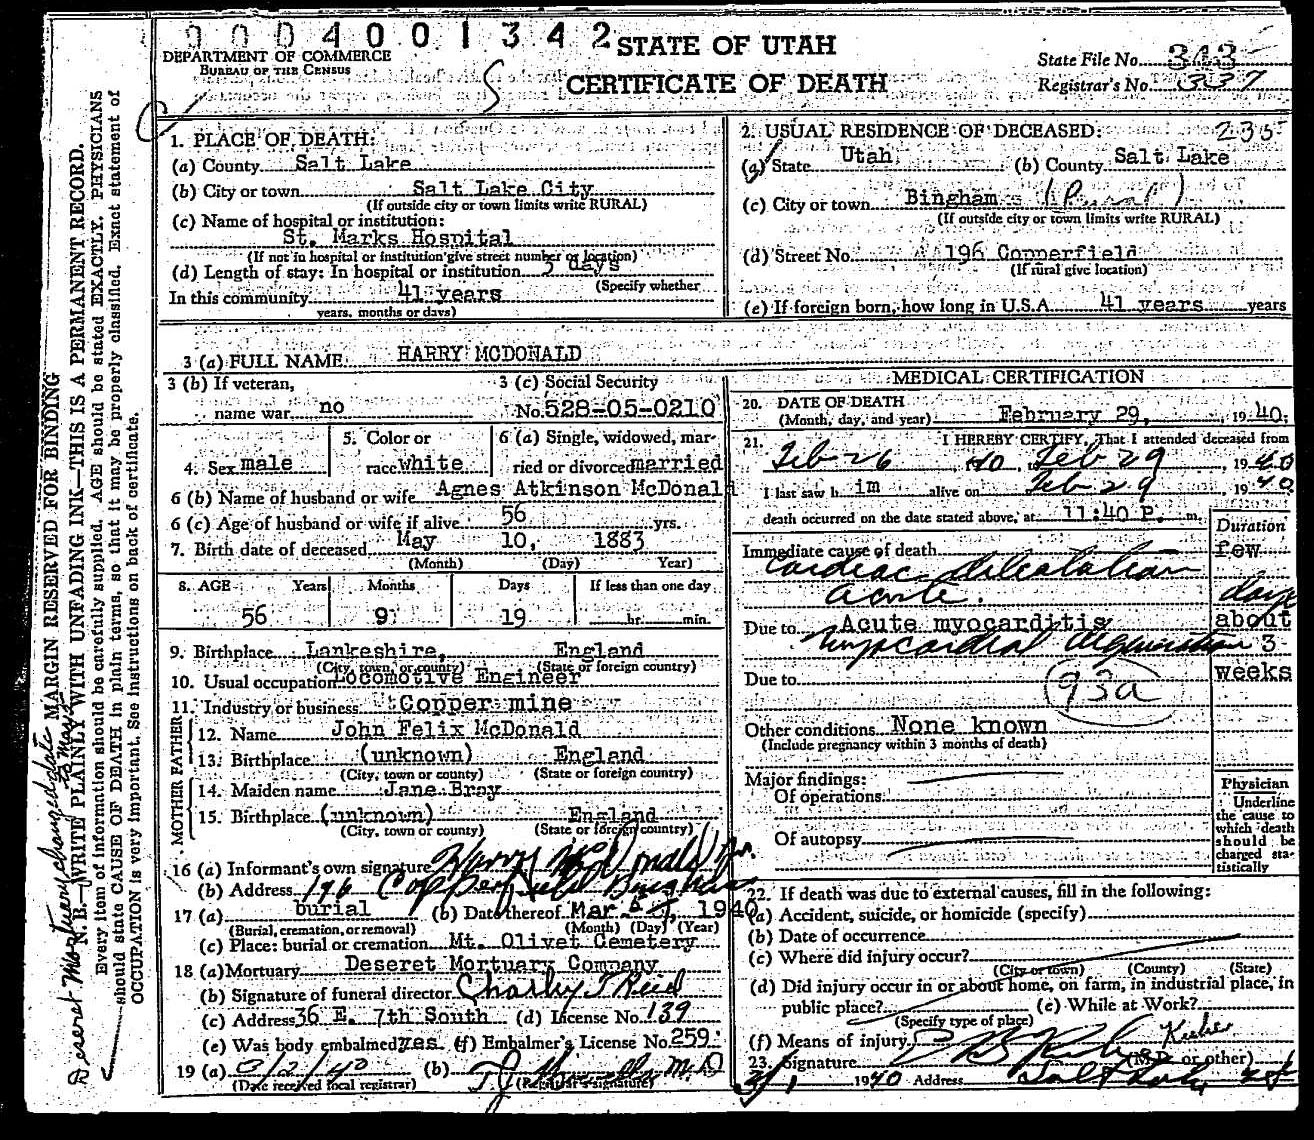 0004001342
STATE OF UTAH
CERTIFICATE OF DEATH
DEPARTMENT OF COMMERCE
BUREAU OF THE CENSUS
State File No. 343
Registrar's No. 337
MARGIN RESERVED FOR BINDING
N. B.—WRITE PLAINLY WITH UNFADING INK—THIS IS A PERMANENT RECORD.
Every item of information should be carefully supplied. AGE should be stated EXACTLY. PHYSICIANS
should state CAUSE OF DEATH in plain terms, so that it may be properly classified. Exact statement of
OCCUPATION is very important. See instructions on back of certificate.
Deseret Mortuary changed date
1. PLACE OF DEATH:
(a) County Salt Lake
(b) City or town Salt Lake City
(If outside city or town limits write RURAL)
(c) Name of hospital or institution:
St. Marks Hospital
(If not in hospital or institution give street number or location)
(d) Length of stay: In hospital or institution 3 days
(Specify whether
In this community 41 years
years, months or days)
2. USUAL RESIDENCE OF DECEASED: 235
(a) State Utah (b) County Salt Lake
(c) City or town Bingham (Rural)
(If outside city or town limits write RURAL)
(d) Street No. 196 Copperfield
(If rural give location)
(e) If foreign born, how long in U.S.A. 41 years years
3 (a) FULL NAME HARRY MCDONALD
3 (b) If veteran,
name war no
3 (c) Social Security
No. 528-05-0210
4. Sex male
5. Color or
race white
6 (a) Single, widowed, mar-
ried or divorced married
6 (b) Name of husband or wife Agnes Atkinson McDonald
6 (c) Age of husband or wife if alive 56 yrs.
7. Birth date of deceased May 10, 1883
(Month) (Day) Year)
8. AGE Years Months Days If less than one day
56 9 19 hr. min.
9. Birthplace Lankeshire, England
(City, town, or county) (State or foreign country)
10. Usual occupation Locomotive Engineer
11. Industry or business Copper mine
FATHER
12. Name John Felix McDonald
13. Birthplace (unknown) England
(City, town or county) (State or foreign country)
MOTHER
14. Maiden name Jane Bray
15. Birthplace (unknown) England
(City, town or county) (State or foreign country)
16 (a) Informant's own signature Harry McDonald Jr.
(b) Address 196 Copperfield Bingham
17 (a) burial (b) Date thereof Mar. 1940
(Burial, cremation, or removal) (Month) (Day) (Year)
(c) Place: burial or cremation Mt. Olivet Cemetery
18 (a) Mortuary Deseret Mortuary Company
(b) Signature of funeral director Charley T Reid
(c) Address 36 E. 7th South (d) License No. 139
(e) Was body embalmed? yes (f) Embalmer's License No. 259
19 (a) 3/2/40 (b) M.D
(Date received local registrar) (Registrar's signature)
MEDICAL CERTIFICATION
20. DATE OF DEATH
(Month, day, and year) February 29, 1940.
21. I HEREBY CERTIFY, That I attended deceased from
Feb 26, 40, to Feb 29, 1940
I last saw him alive on Feb 29 1940.
death occurred on the date stated above, at 11:40 P. m.
Duration
Immediate cause of death few
Cardiac dilatation
Acute. days
Due to Acute myocarditis about
Myocardial degeneration 3
Due to weeks
93a
Other conditions None known
(Include pregnancy within 3 months of death)
Major findings:
Of operations
Of autopsy
Physician
Underline
the cause to
which death
should be
charged sta-
tistically
22. If death was due to external causes, fill in the following:
(a) Accident, suicide, or homicide (specify)
(b) Date of occurrence
(c) Where did injury occur?
(City or town) (County) (State)
(d) Did injury occur in or about home, on farm, in industrial place, in
public place? (e) While at Work?
(Specify type of place)
(f) Means of injury
23. Signature (M.D. or other)
3/1 1940 Address Salt Lake